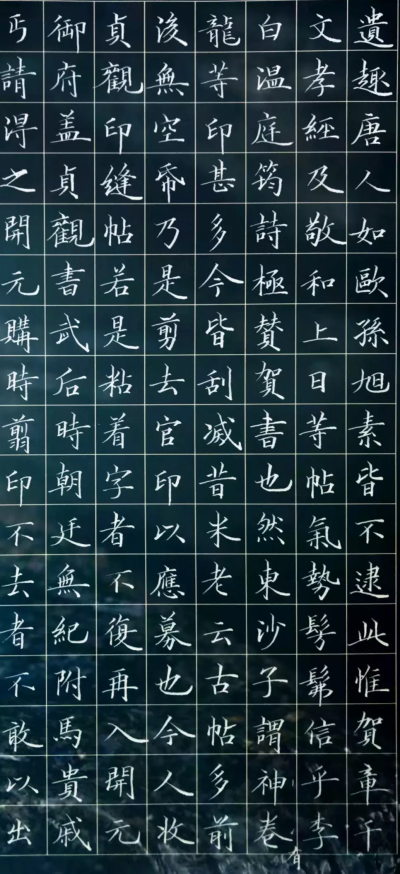 遺趣唐人如歐孫旭素皆不逮此惟賀章千
文孝經及敬和上日等帖氣勢髣髴信乎李
白温庭筠詩極賛賀書也然東沙子謂神卷有
龍等印甚多今皆刮滅昔米老云古帖多前
後無空帋乃是剪去官印以應募也今人收
貞觀印縫帖若是粘着字者不復再入開元
御府盖貞觀書武后時朝廷無紀附馬貴戚
丐請淂之開元購時翦印不去者不敢以出